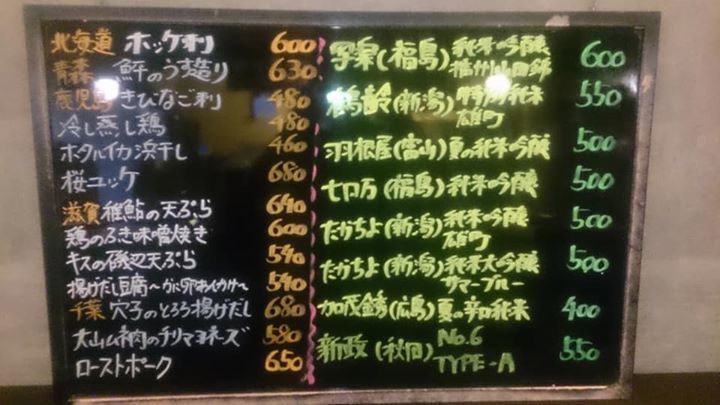 北海道 ホッケ刺 600
青森 鮃のうす造り 630
鹿児島 きびなご刺 480
冷し蒸し鶏 480
ホタルイカ浜干し 460
桜ユッケ 680
滋賀 稚鮎の天ぷら 640
鶏のふき味噌焼き 600
キスの磯辺天ぷら 540
揚げだし豆腐〜かに卵あんかけ〜 540
千葉 穴子のとろろ揚げだし 680
大山ムネ肉のチリマヨネーズ 580
ローストポーク 650
写楽(福島)純米吟醸 600
播州山田錦
鶴齢(新潟)特別純米 550
雄町
羽根屋(富山)夏の純米吟醸 500
七ロ万(福島)純米吟醸 500
たかちよ(新潟)純米吟醸 500
雄町
たかちよ(新潟)純米大吟醸 500
サマーブルー
加茂錦(広島)夏の辛口純米 400
新政(秋田) No.6 550
TYPE-A